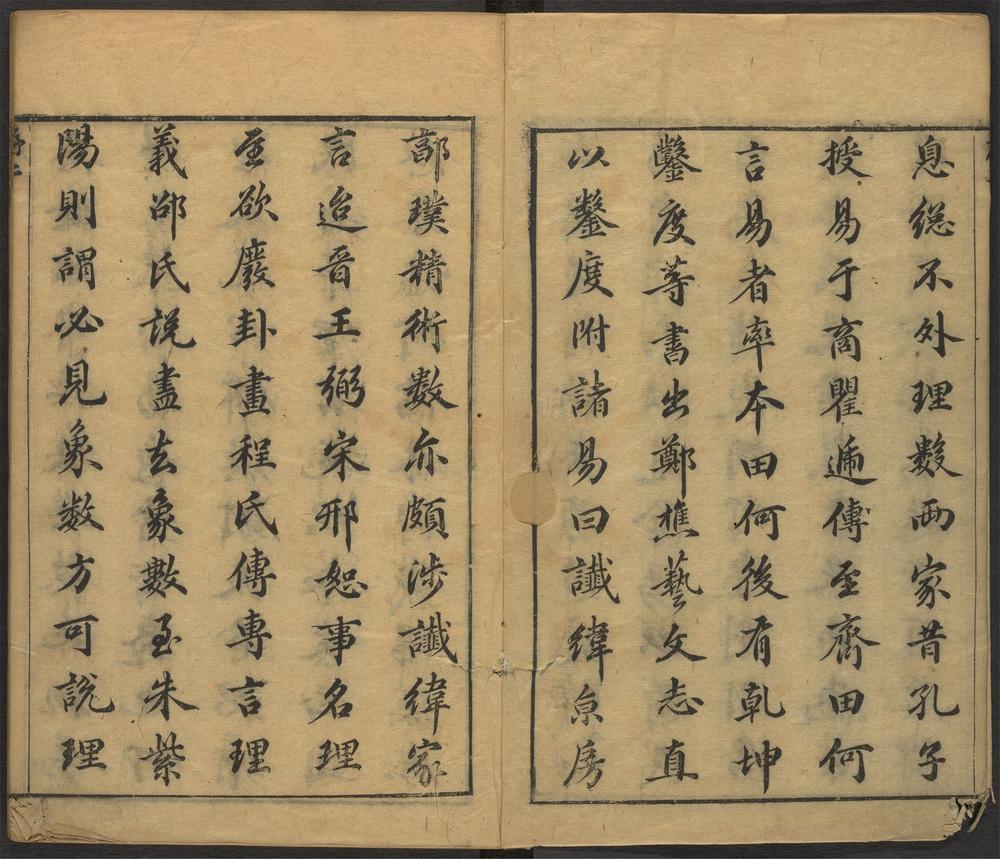 息總不外理數兩家昔孔子
授易于商瞿遞傳至齊田何
言易者率本田何後有乾坤
鑿度等書出鄭樵藝文志直
以鑿度附諸易曰讖緯京房
郭璞精術數亦頗涉讖緯家
言迨晉王弼宋邢恕事名理
至欲廢卦畫程氏傳專言理
義邵氏說盡去象數至朱紫
陽則謂必見象数方可說理
序二